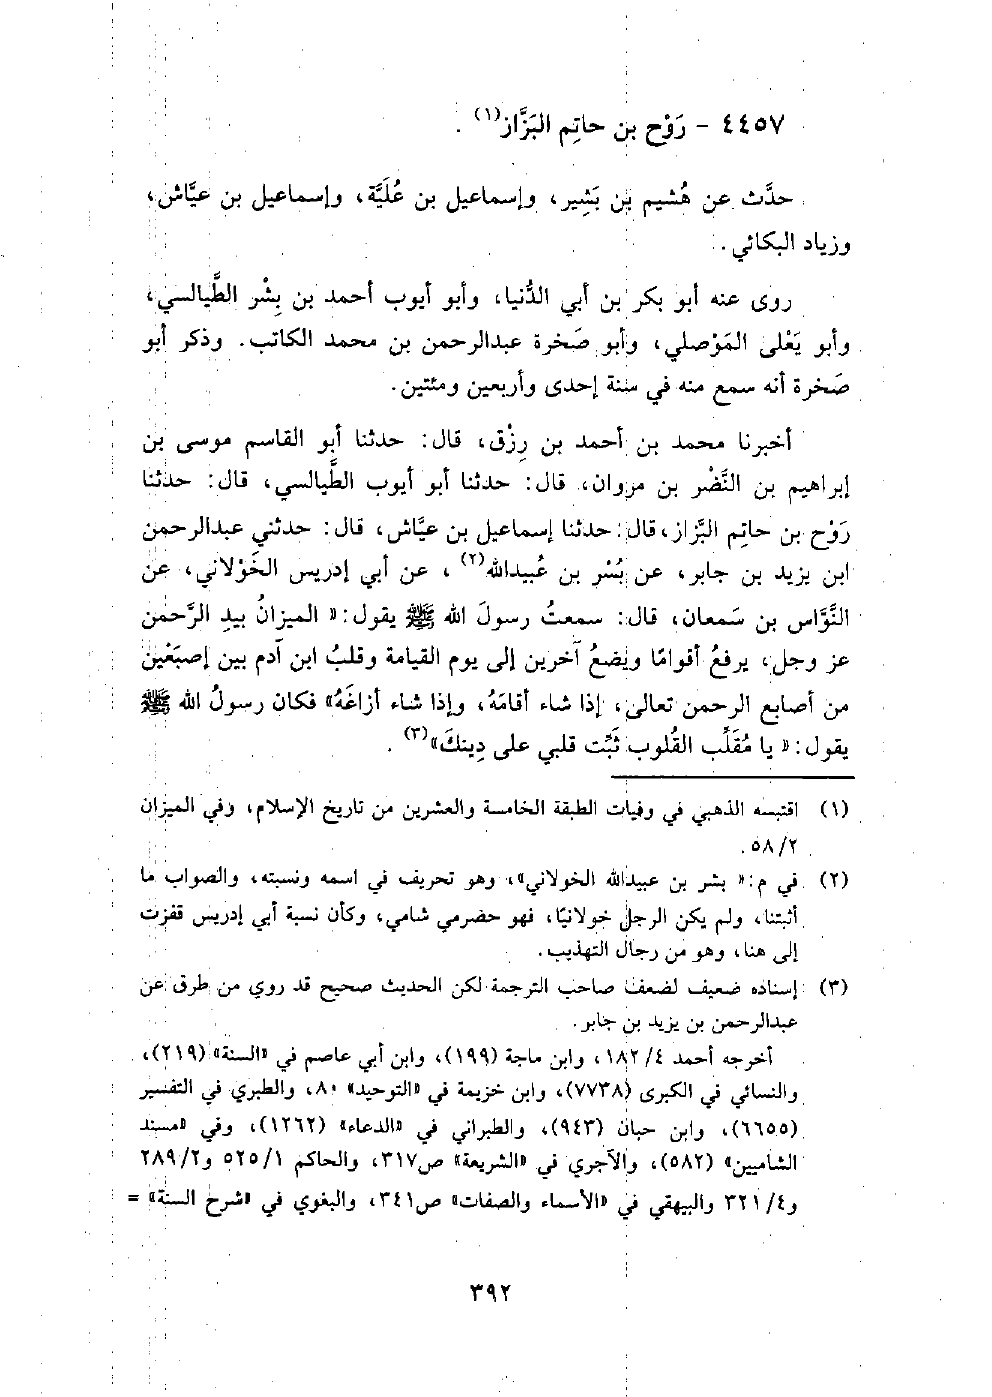 ٤٤٥٧ - رَوْح بن حاتِم البَزَّاز(١).
حدَّث عن هُشيم بن بَشِير، وإسماعيل بن عُلَيَّة، وإسماعيل بن عيَّاش،
وزياد البكائي.
روى عنه أبو بكر بن أبي الدُّنيا، وأبو أيوب أحمد بن بِشْر الطَّيالسي،
وأبو يَعْلى المَوْصلي، وأبو صَخرة عبدالرحمن بن محمد الكاتب. وذكر أبو
صَخرة أنه سمع منه في سنة إحدى وأربعين ومئتين.
أخبرنا محمد بن أحمد بن رِزْق، قال: حدثنا أبو القاسم موسى بن
إبراهيم بن النَّضْر بن مروان، قال: حدثنا أبو أيوب الطَّيالسي، قال: حدثنا
رَوْح بن حاتِم البَّزاز، قال: حدثنا إسماعيل بن عيَّاش، قال: حدثني عبدالرحمن
ابن يزيد بن جابر، عن بُسْر بن عُبيدالله(٢)، عن أبي إدريس الخَوْلاني، عن
النَّوَّاس بن سَمعان، قال: سمعتُ رسولَ الله ﷺ يقول: «الميزانُ بيدِ الرَّحمن
عز وجل، يرفعُ أقوامًا ويَضعُ آخرين إلى يوم القيامة وقلبُ ابن آدم بين إصبَعْين
من أصابع الرحمن تعالى، إذا شاء أقامَهُ، وإذا شاء أزاغَهُ» فكان رسولُ الله ﷺ
يقول: «يا مُقَلِّب القُلوب ثَبِّت قلبي على دِينكَ»(٣).
(١) اقتبسه الذهبي في وفيات الطبقة الخامسة والعشرين من تاريخ الإسلام، وفي الميزان
٢/ ٥٨.
(٢) في م: «بشر بن عبيدالله الخولاني»، وهو تحريف في اسمه ونسبته، والصواب ما
أثبتنا، ولم يكن الرجل خولانيًا، فهو حضرمي شامي، وكأن نسبة أبي إدريس قفزت
إلى هنا، وهو من رجال التهذيب.
(٣) إسناده ضعيف لضعف صاحب الترجمة لكن الحديث صحيح قد روي من طرق عن
عبدالرحمن بن يزيد بن جابر.
أخرجه أحمد ٤/ ١٨٢، وابن ماجة (١٩٩)، وابن أبي عاصم في «السنة» (٢١٩)،
والنسائي في الكبرى (٧٧٣٨)، وابن خزيمة في «التوحيد» ٨٠، والطبري في التفسير
(٦٦٥٥)، وابن حبان (٩٤٣)، والطبراني في «الدعاء» (١٢٦٢)، وفي «مسند
الشاميين» (٥٨٢)، والآجري في «الشريعة» ص٣١٧، والحاكم ١/ ٥٢٥ و٢/ ٢٨٩
و٤/ ٣٢١ والبيهقي في «الأسماء والصفات» ص٣٤١، والبغوي في «شرح السنة» =
٣٩٢